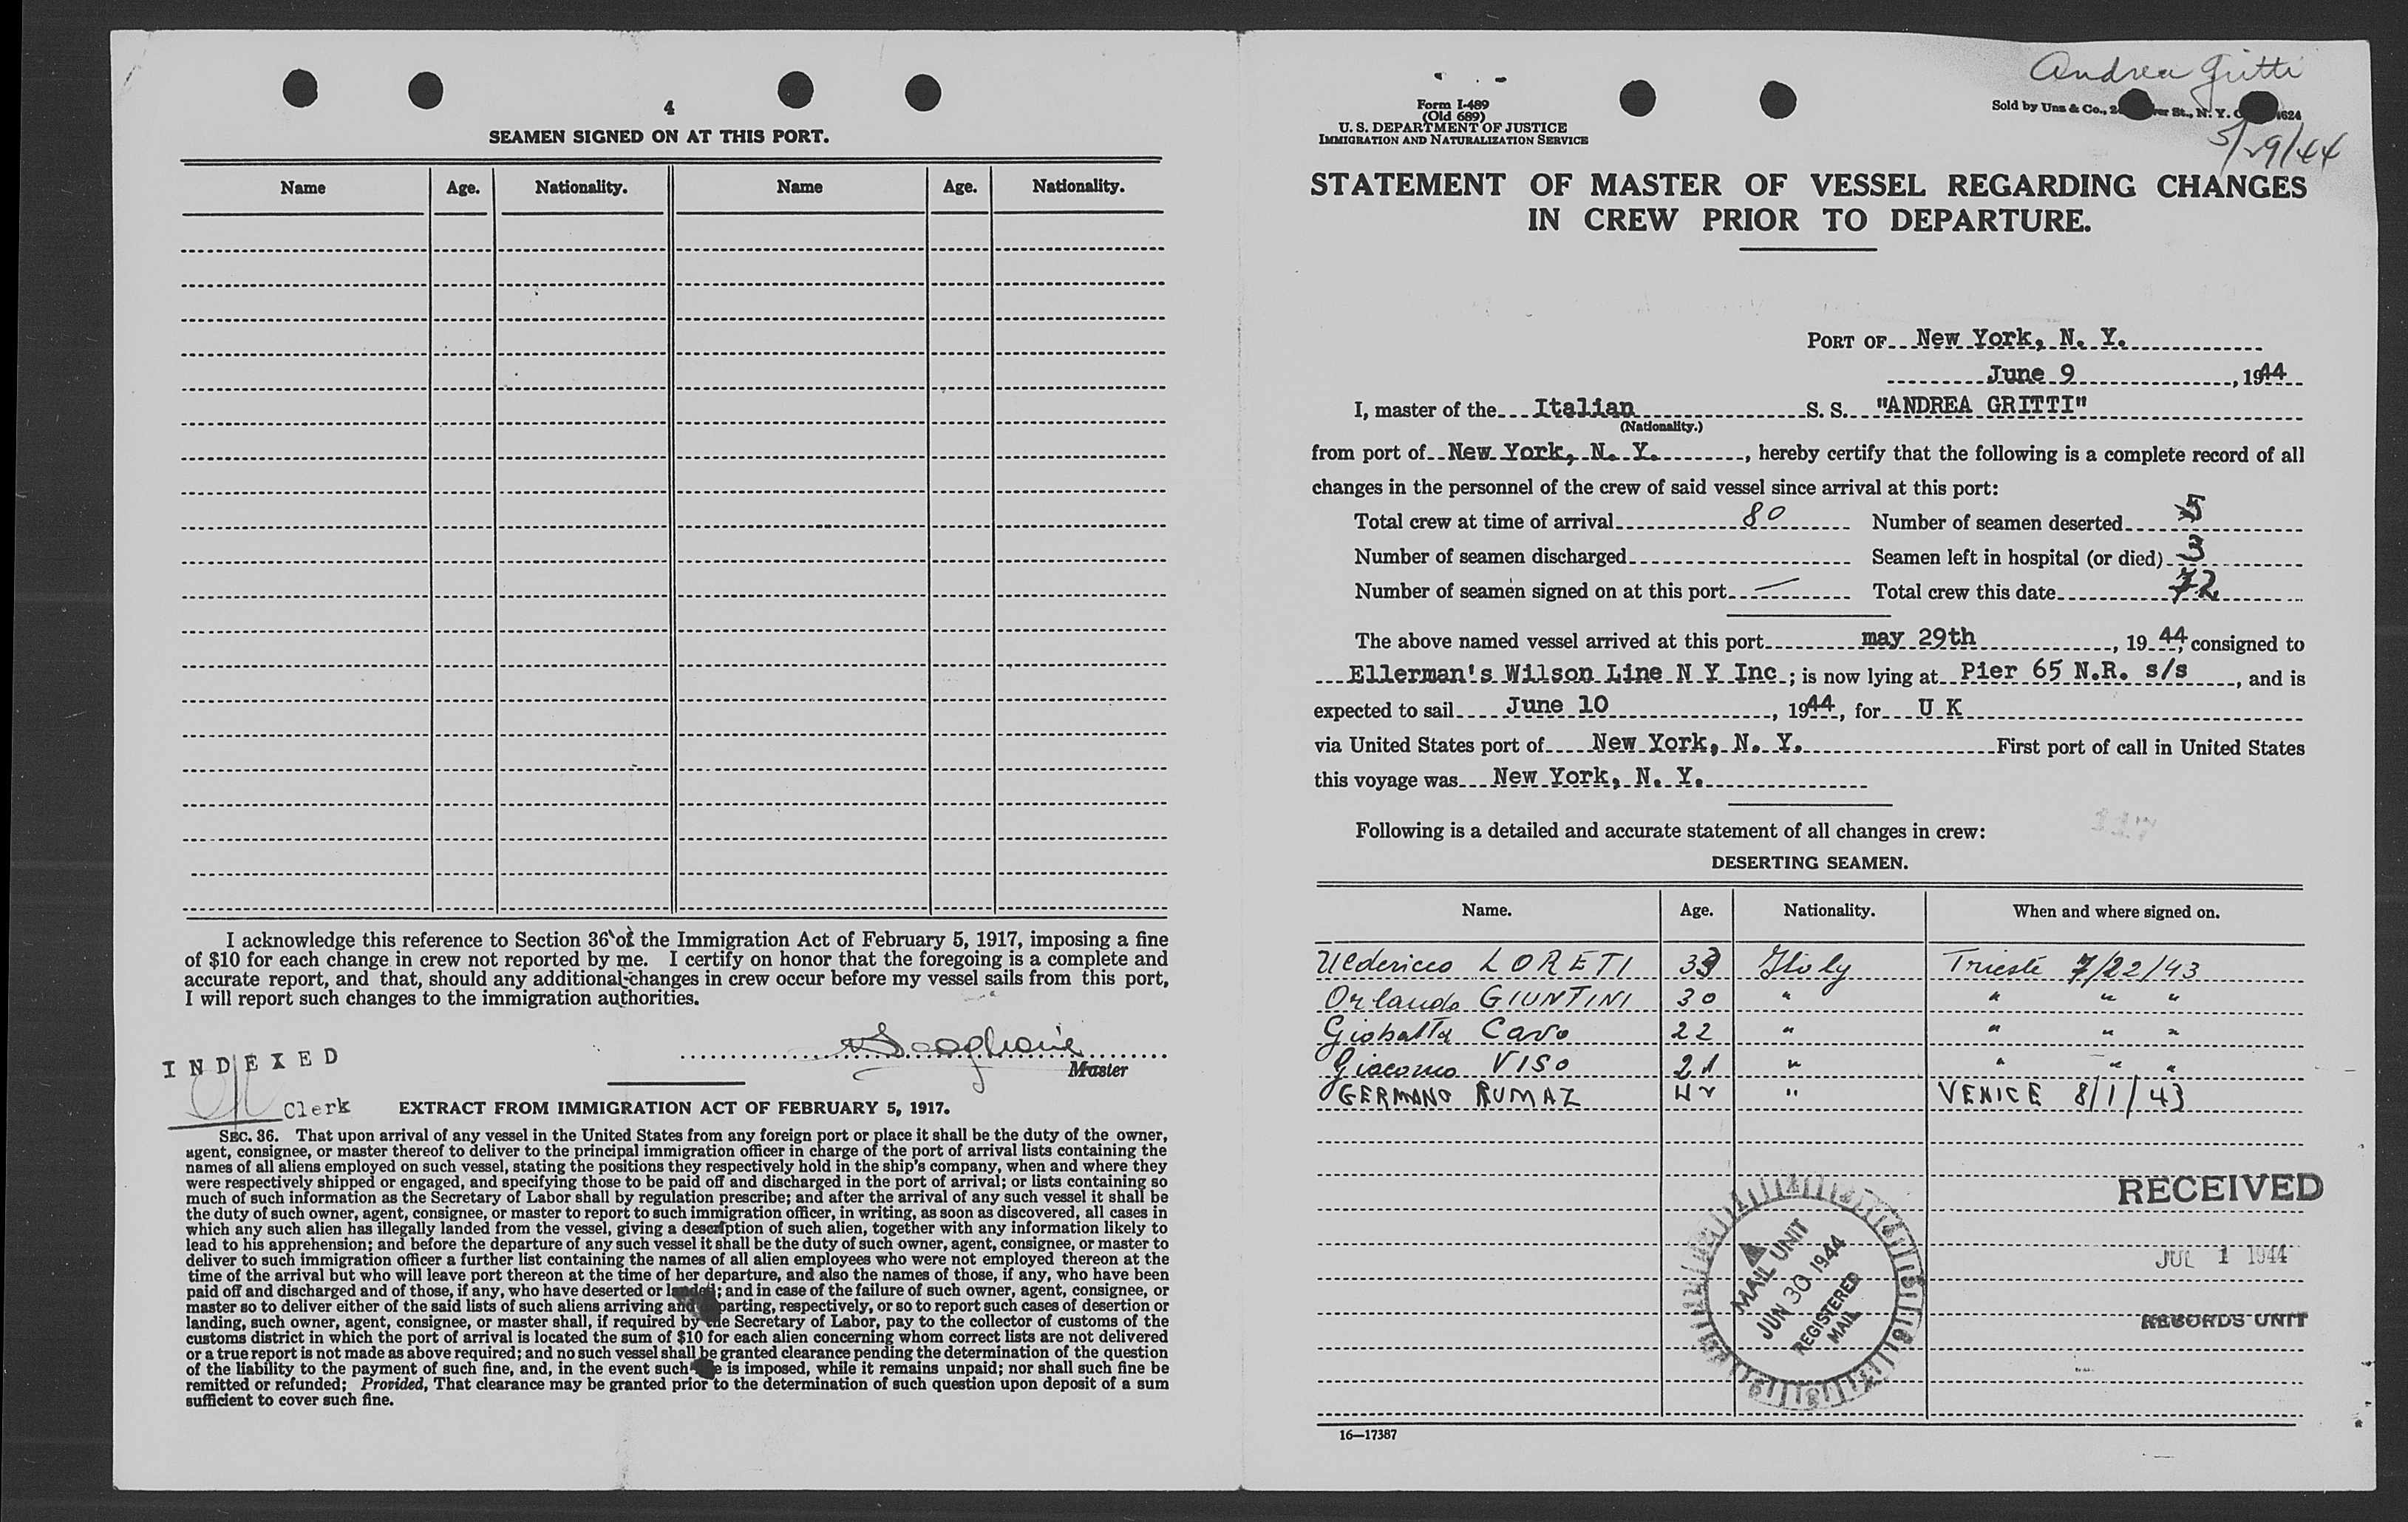 4
SEAMEN SIGNED ON AT THIS PORT.
Name Age. Nationality. Name Age. Nationality.
I acknowledge this reference to Section 36 of the Immigration Act of February 5, 1917, imposing a fine
of $10 for each change in crew not reported by me. I certify on honor that the foregoing is a complete and
accurate report, and that, should any additional changes in crew occur before my vessel sails from this port,
I will report such changes to the immigration authorities.
Master
INDEXED
Clerk
EXTRACT FROM IMMIGRATION ACT OF FEBRUARY 5, 1917.
SEC. 36. That upon arrival of any vessel in the United States from any foreign port or place it shall be the duty of the owner,
agent, consignee, or master thereof to deliver to the principal immigration officer in charge of the port of arrival lists containing the
names of all aliens employed on such vessel, stating the positions they respectively hold in the ship's company, when and where they
were respectively shipped or engaged, and specifying those to be paid off and discharged in the port of arrival; or lists containing so
much of such information as the Secretary of Labor shall by regulation prescribe; and after the arrival of any such vessel it shall be
the duty of such owner, agent, consignee, or master to report to such immigration officer, in writing, as soon as discovered, all cases in
which any such alien has illegally landed from the vessel, giving a description of such alien, together with any information likely to
lead to his apprehension; and before the departure of any such vessel it shall be the duty of such owner, agent, consignee, or master to
deliver to such immigration officer a further list containing the names of all alien employees who were not employed thereon at the
time of the arrival but who will leave port thereon at the time of her departure, and also the names of those, if any, who have been
paid off and discharged and of those, if any, who have deserted or landed; and in case of the failure of such owner, agent, consignee, or
master so to deliver either of the said lists of such aliens arriving and departing, respectively, or so to report such cases of desertion or
landing, such owner, agent, consignee, or master shall, if required by the Secretary of Labor, pay to the collector of customs of the
customs district in which the port of arrival is located the sum of $10 for each alien concerning whom correct lists are not delivered
or a true report is not made as above required; and no such vessel shall be granted clearance pending the determination of the question
of the liability to the payment of such fine, and, in the event such fine is imposed, while it remains unpaid; nor shall such fine be
remitted or refunded; Provided, That clearance may be granted prior to the determination of such question upon deposit of a sum
sufficient to cover such fine.
Andrea Gritti
Form I-489
(Old 689)
U. S. DEPARTMENT OF JUSTICE
IMMIGRATION AND NATURALIZATION SERVICE
Sold by Unz & Co., St., N. Y.
5/29/44
STATEMENT OF MASTER OF VESSEL REGARDING CHANGES
IN CREW PRIOR TO DEPARTURE.
PORT OF New York, N. Y.
June 9, 1944
I, master of the Italian S. S. "ANDREA GRITTI"
(Nationality.)
from port of New York, N. Y., hereby certify that the following is a complete record of all
changes in the personnel of the crew of said vessel since arrival at this port:
Total crew at time of arrival 80 Number of seamen deserted 5
Number of seamen discharged Seamen left in hospital (or died) 3
Number of seamen signed on at this port — Total crew this date 72
The above named vessel arrived at this port may 29th, 1944, consigned to
Ellerman's Wilson Line N Y Inc; is now lying at Pier 65 N.R. s/s, and is
expected to sail June 10, 1944, for U K
via United States port of New York, N. Y. First port of call in United States
this voyage was New York, N. Y.
117
Following is a detailed and accurate statement of all changes in crew:
DESERTING SEAMEN.
Name. Age. Nationality. When and where signed on.
Ulderico LORETI 33 Italy Trieste 7/22/43
Orlando GIUNTINI 30 " " " "
Giobatta Cavo 22 " " " "
Giacomo VISO 21 " " " "
GERMANO RUMAZ 42 " VENICE 8/1/43
MAIL UNIT
JUN 30 1944
REGISTERED
MAIL
RECEIVED
JUL 1 1944
RECORDS UNIT
16—17387